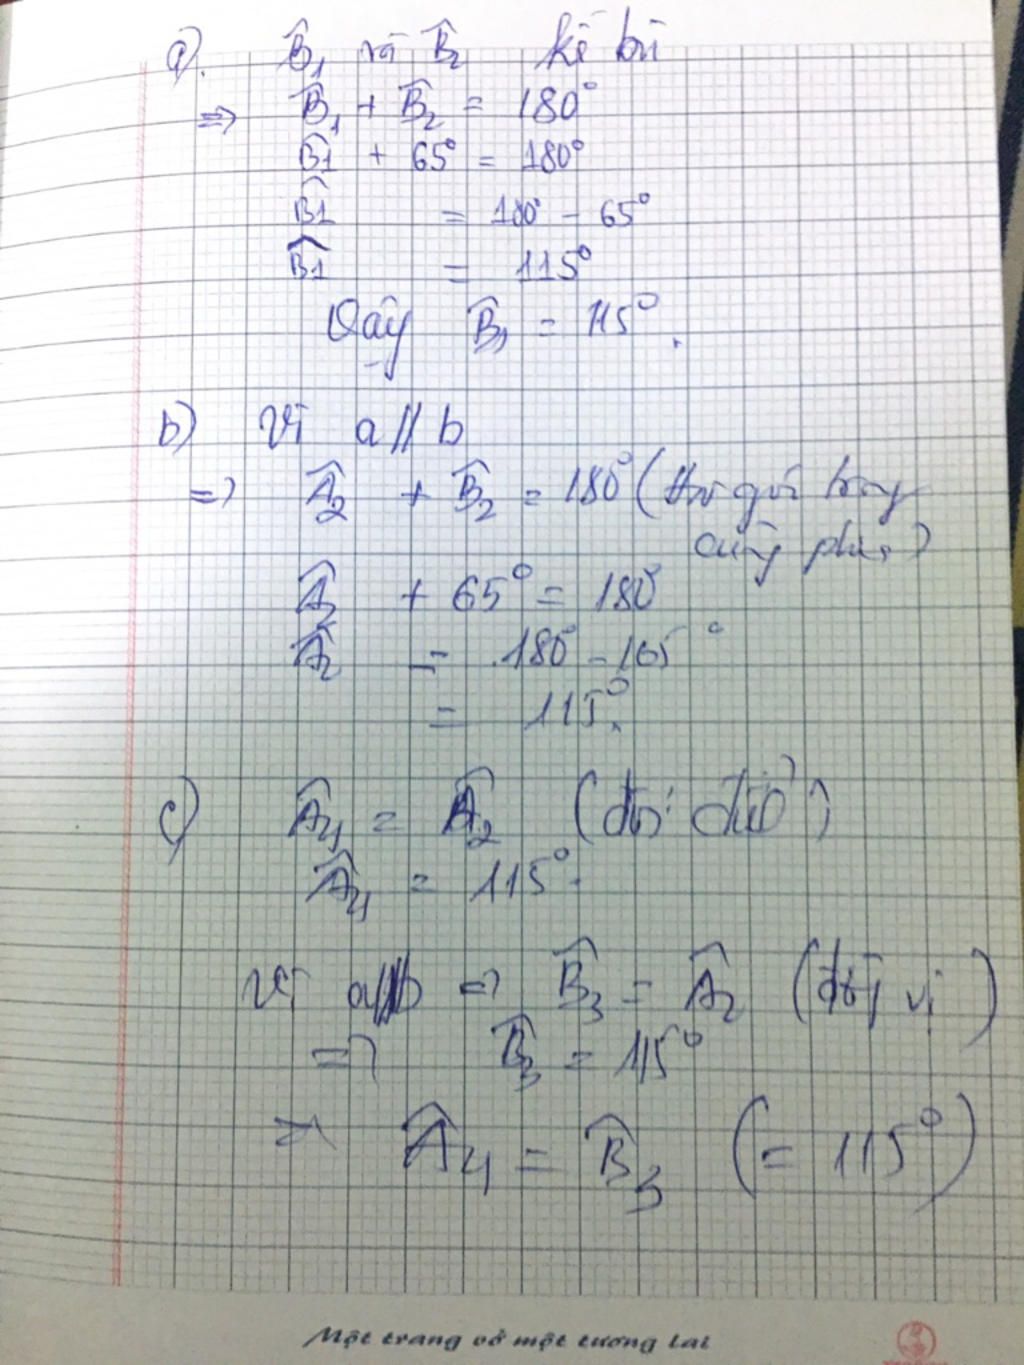 a). B̂1 và B̂2 kề bù
⇒ B̂1 + B̂2 = 180°
B̂1 + 65° = 180°
B̂1 = 180° - 65°
B̂1 = 115°
Vậy B̂1 = 115°.
b) Vì a // b
=> Â2 + B̂2 = 180° ( góc trong
cùng phía)
Â2 + 65° = 180°
Â2 = 180° - 65°
= 115°.
c) Â4 = Â2 (đối đỉnh)
Â4 = 115°.
Vì a//b => B̂3 = Â2 (đồng vị)
=> B̂3 = 115°
=> Â4 = B̂3 (= 115°)
Một trang vở một tương lai